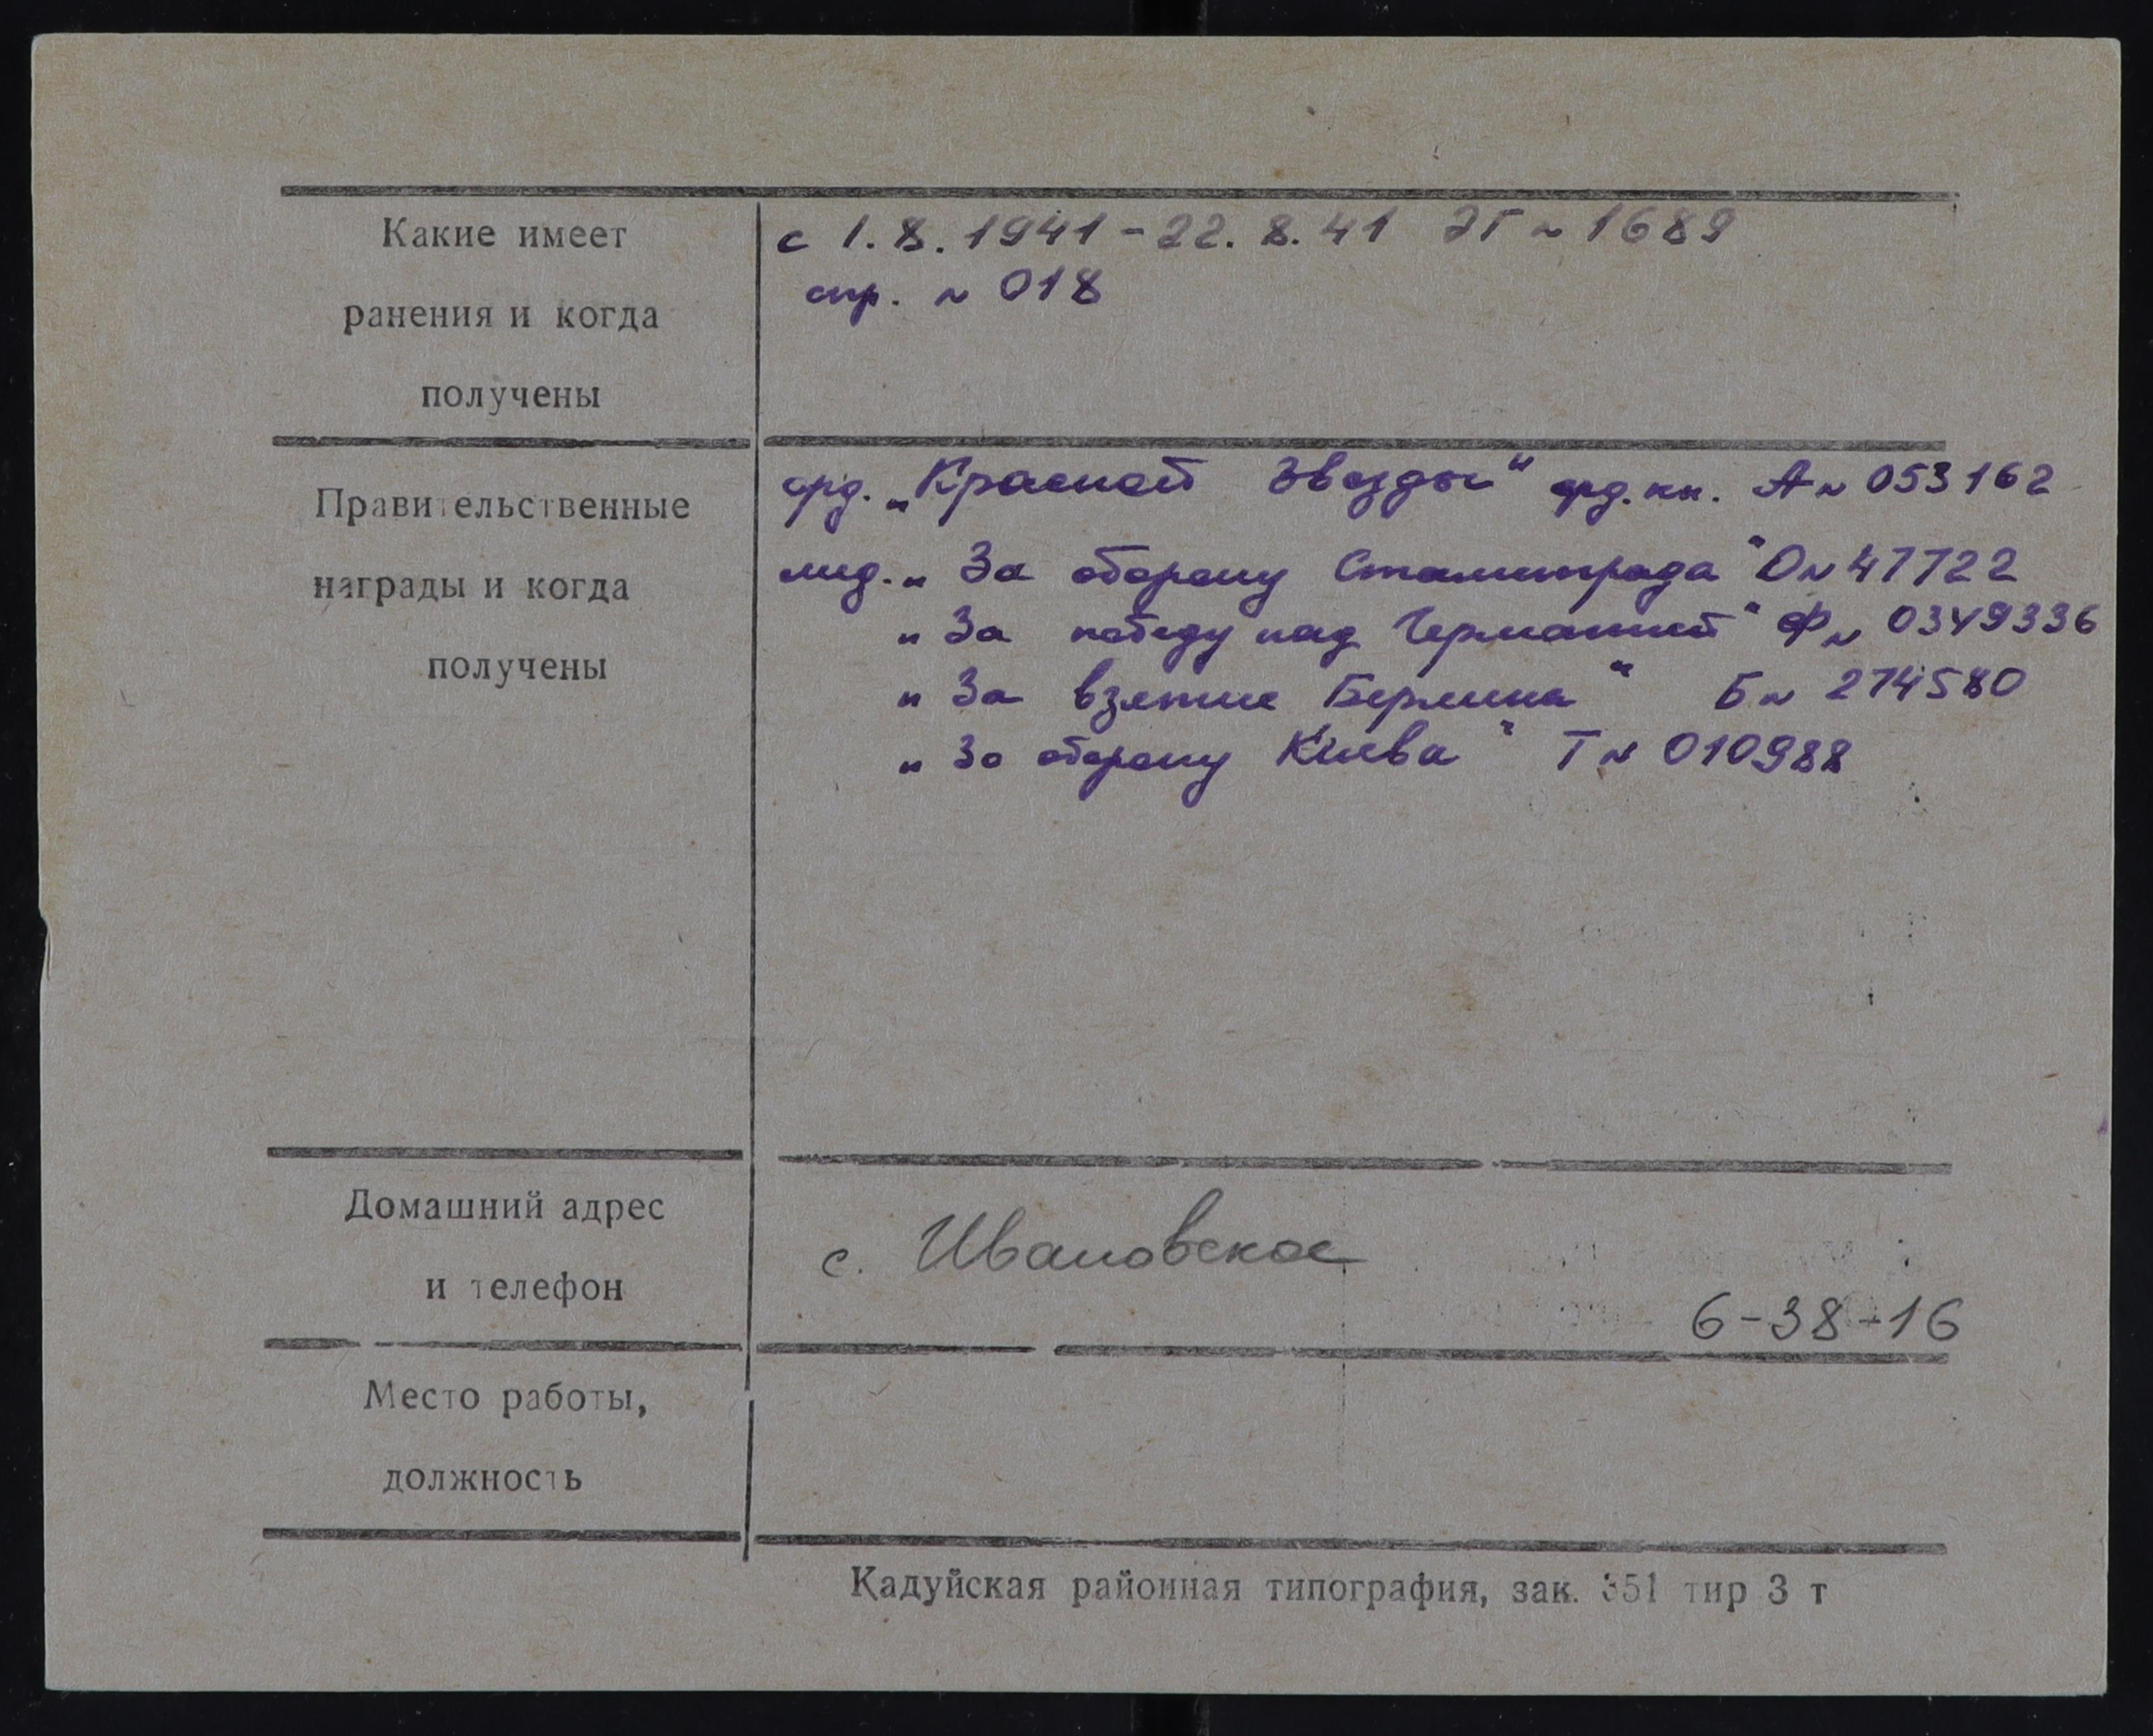 Какие имеет
ранения и когда
получены
с 1.8.1941-22.8.41 ЭГ N 1689
спр. N 018
Правительственные
награды и когда
получены
орд. „Красной Звезды" орд. кн. А N 053162
мед. „За оборону Сталинграда" О N 47722
„За победу над Германией" Ф N 0349336
„За взятие Берлина" Б N 274580
„За оборону Киева" Т N 010988
Домашний адрес
и телефон
с. Ивановское
6-38-16
Место работы,
должность
Кадуйская районная типография, зак. 351 тир 3 т